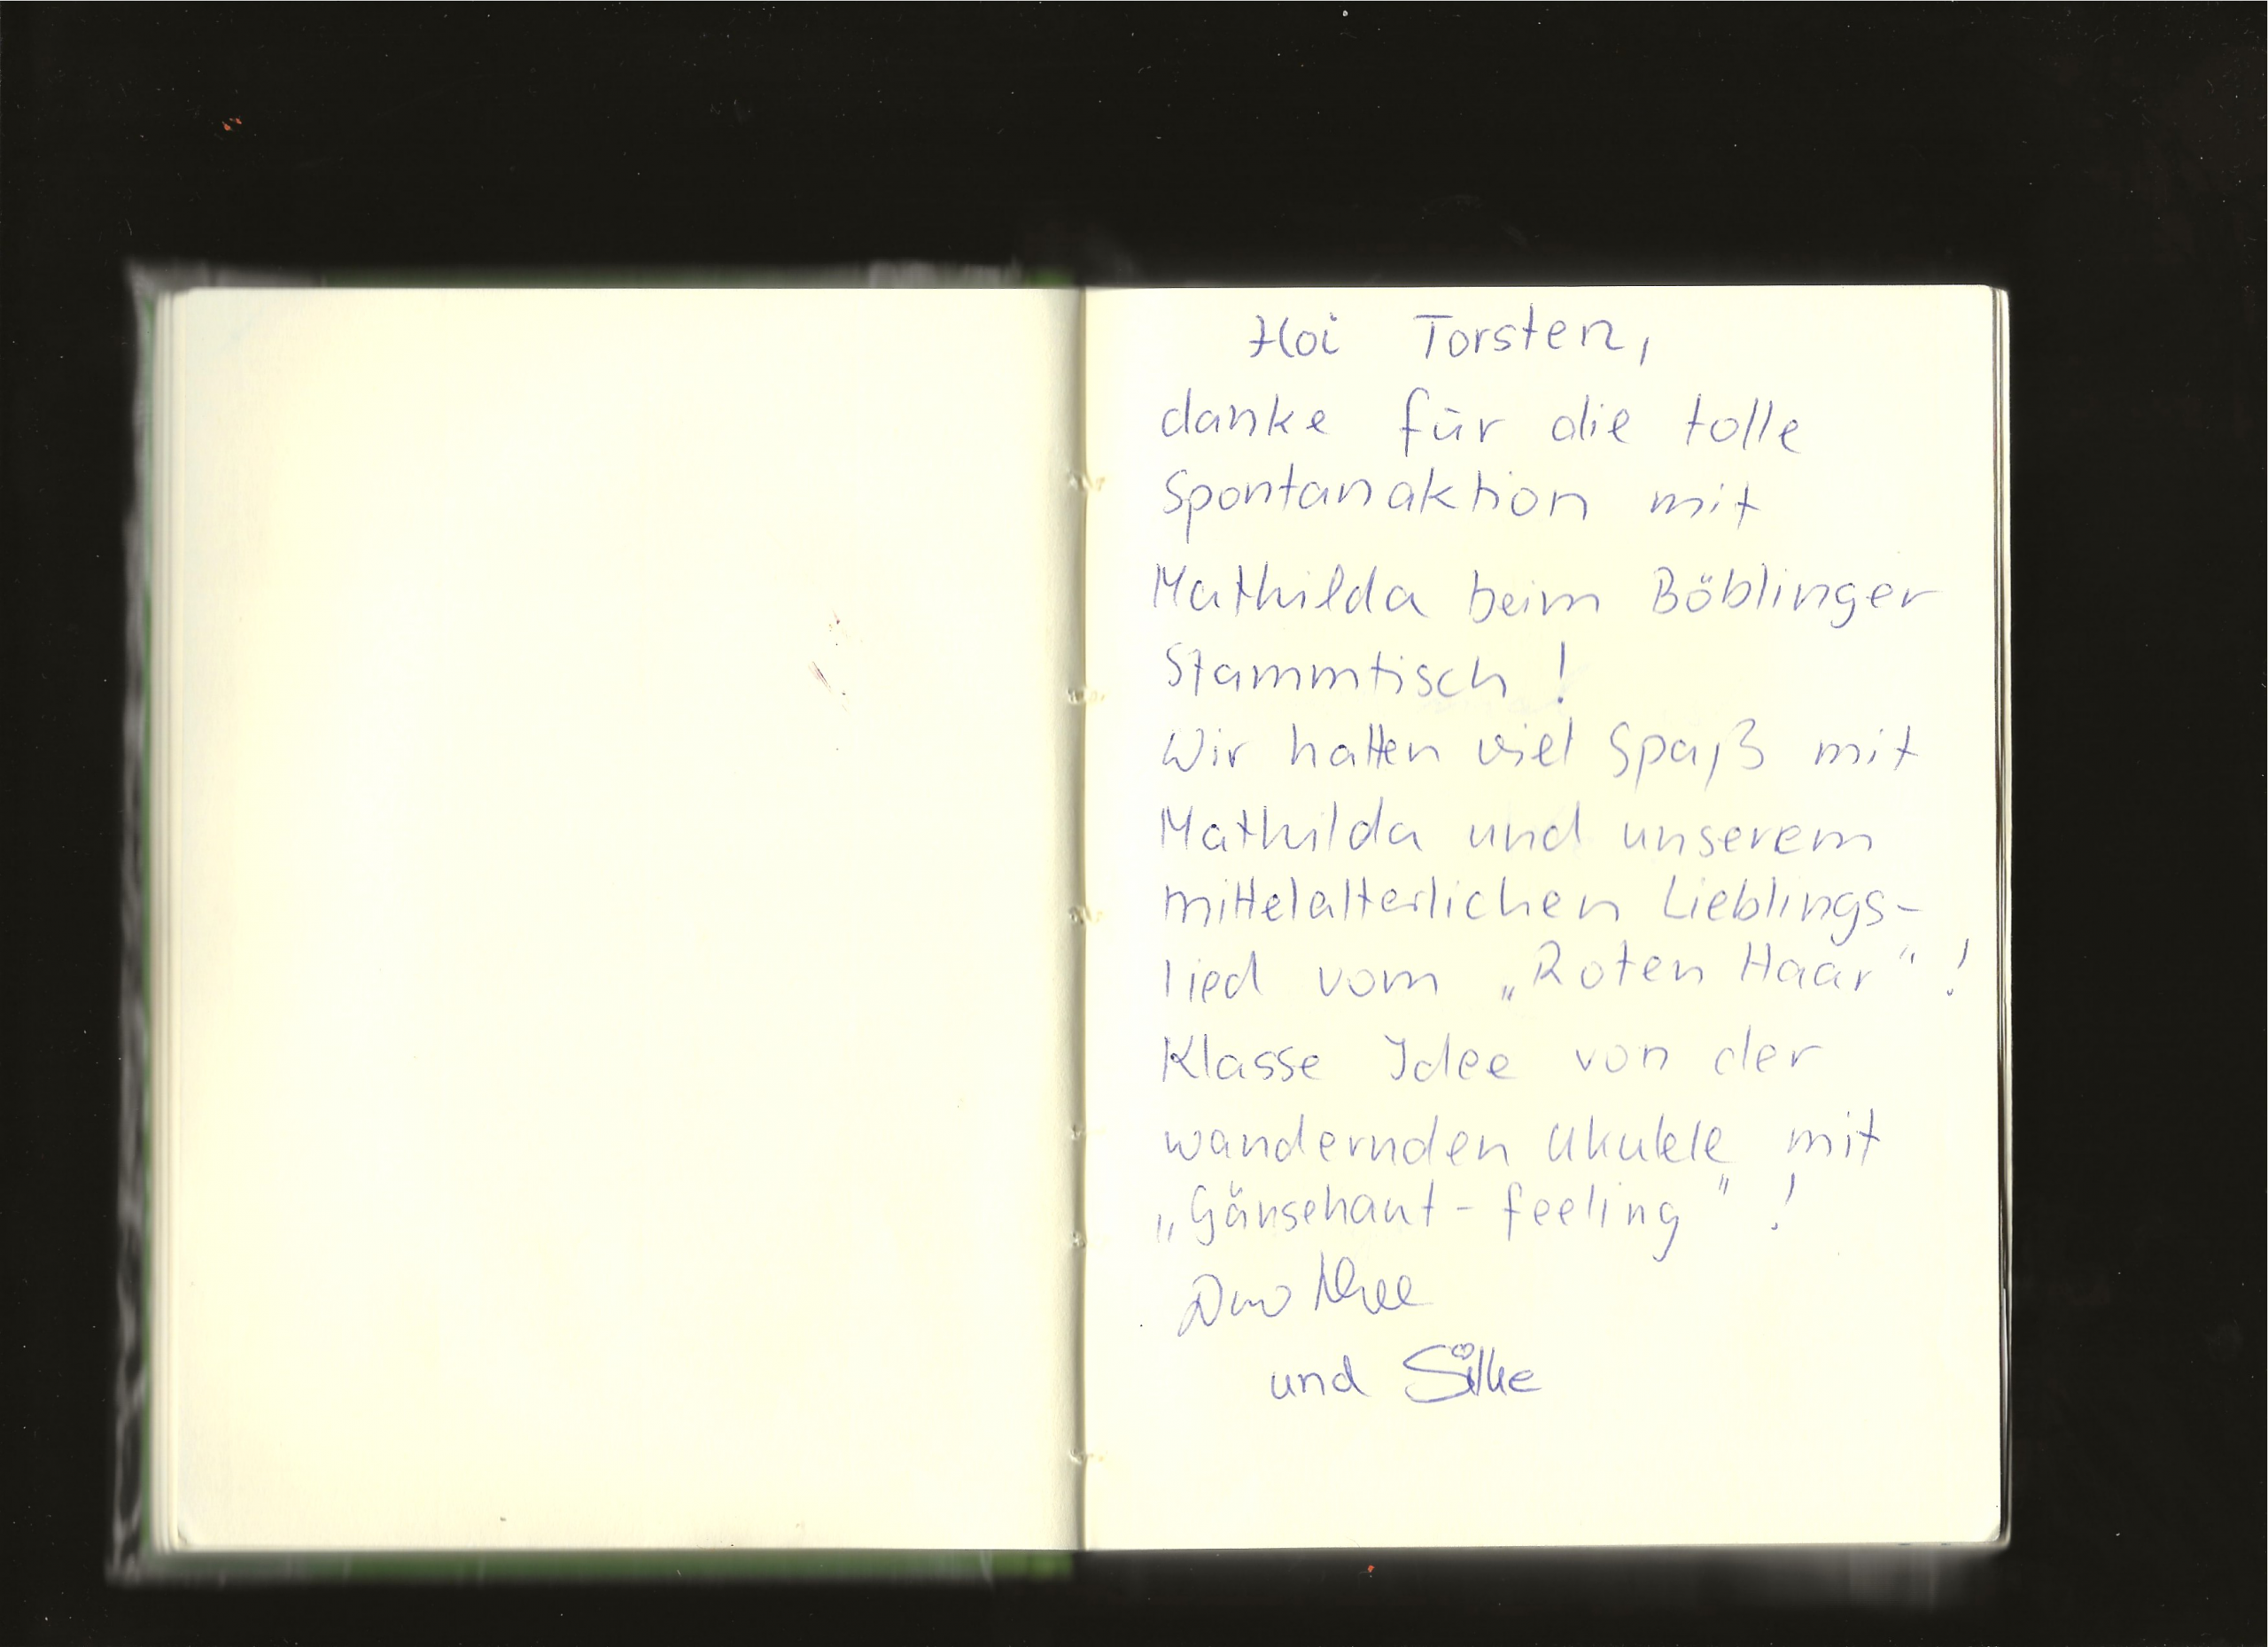 Hoi Torsten,
danke für die tolle
Spontanaktion mit
Mathilda beim Böblinger
Stammtisch!
Wir hatten viel Spaß mit
Mathilda und unserem
mittelalterlichen Lieblings-
lied vom „Roten Haar"!
Klasse Idee von der
wandernden Ukulele mit
„Gänsehaut-feeling"!
und Silke